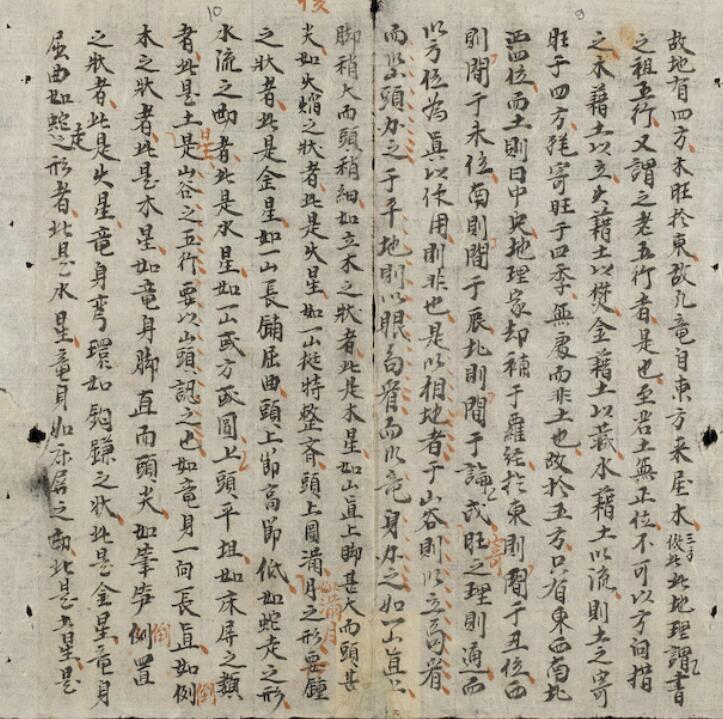 故地有四方木旺於東故凡竜自東方来屋木三方倣此此地理謂書
之祖五行又謂之老五行者是也至若土無正位不可以方向措
之木藉土以立火藉土以焚金藉土以藏水藉土以流則土之寄
旺于四方寄旺于四季無處而非土也故於五方只有東西南北
正四位而土則曰中央地理家却補于羅経於東則閣于丑位西
則閣于未位南則閣于辰北則閣于論之戍寄旺之理則通而
以方位為真以使用則非也是以相地者于山谷則以立局看
而案頭办之于平地則以眼局看而以竜身办之如一山直上
脚稍大而頭稍細如立木之状者此是木星如山直上脚甚大而頭甚
尖如火焰之状者此是火星如一山挺特整斉頭上圓滿月之形如滿月覆鍾
之状者此是金星如一山長鋪屈曲頭上節高節低如蛇走之形
水流之勢者此是水星如一山或方或圓上頭平坦如床屏之類
者此是土星是山谷之五行要以山頭認之也如竜身一向長直如倒
木之状者此是木星如竜身脚直而頭尖如筆芦倒置
之状者此是火星竜身彎環如鈎鎌之状此是金星竜身
屈曲如蛇走之形者此是水星竜身如床屏之勢此是土星是
10
9